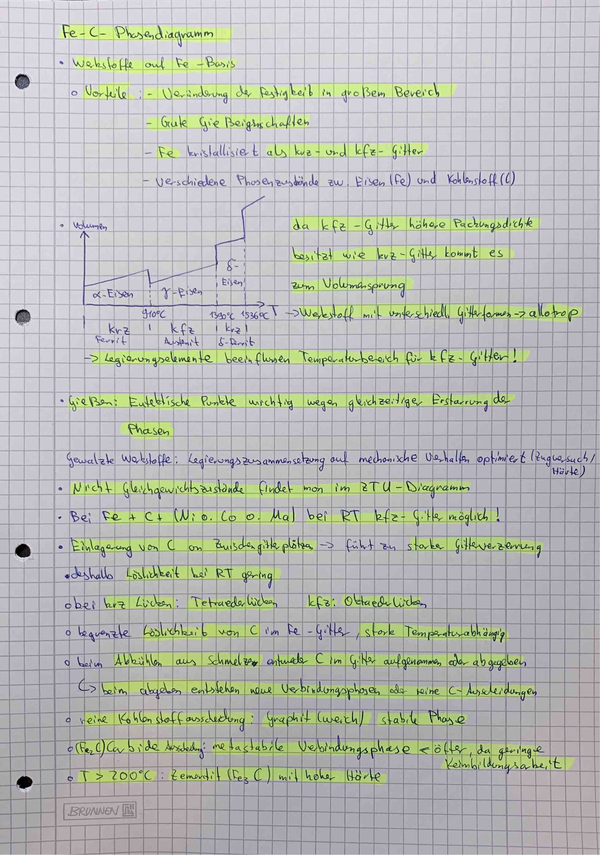 Fe-C-Phasendiagramm
• Werkstoffe auf Fe-Basis
o Vorteile: - Veränderung der Festigkeit in großem Bereich
- Gute Gießeigenschaften
- Fe kristallisiert als krz- und kfz-Gitter
- verschiedene Phasenzustände zw. Eisen (Fe) und Kohlenstoff (C)
• Volumen
α-Eisen γ-Eisen δ-Eisen
910°C 1390°C 1536°C T
krz kfz krz
Ferrit Austenit δ-Ferrit
da kfz-Gitter höhere Packungsdichte
besitzt wie krz-Gitter kommt es
zum Volumensprung
→ Werkstoff mit unterschiedl. Gitterformen → allotrop
→ Legierungselemente beeinflussen Temperaturbereich für kfz-Gitter!
• Gießen: Eutektische Punkte wichtig wegen gleichzeitiger Erstarrung der
Phasen
Gewalzte Werkstoffe: Legierungszusammensetzung auf mechanische Verhalten optimiert (Zugversuch/
Härte)
• Nicht Gleichgewichtszustände findet man im ZTU-Diagramm
• Bei Fe + C + (Ni o. Co o. Ma) bei RT kfz-Gitter möglich!
• Einlagerung von C an Zwischengitterplätzen → führt zu starke Gitterverzerrung
• deshalb Löslichkeit bei RT gering
o bei krz Lücken: Tetraederlücken kfz: Oktaederlücken
o begrenzte Löslichkeit von C im Fe-Gitter, stark Temperaturabhängig
o beim Abkühlen aus Schmelze entweder C im Gitter aufgenommen oder abgegeben
↳ beim abgeben entstehen neue Verbindungsphasen oder reine C-Ausscheidungen
o reine Kohlenstoffausscheidung: Graphit (weich) stabile Phase
o (Fe₂C) Carbide Ausscheidung: metastabile Verbindungsphase ← öfter, da geringe
Keimbildungsarbeit
o T > 200°C: Zementit (Fe₃C) mit hoher Härte
BRUNNEN